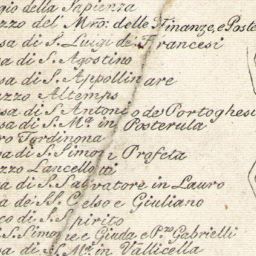 gio della Sapienza
zzo del Mro: delle Finanze, e Poste
sa di S. Luigi de Francesi
sa di S. Agostino
sa di S. Appollinare
azzo Altemps
sa di S. Antonio de Portoghesi
sa di S. Ma. in Posterula
ro Tordinona
sa di S. Simone Profeta
azzo Lancellotti
sa di S. Salvatore in Lauro
sa de SS. Celso e Giuliano
co di S. Spirito
S. Simone e Giuda e Pzo. Gabrielli
sa di S. Ma. in Vallicella